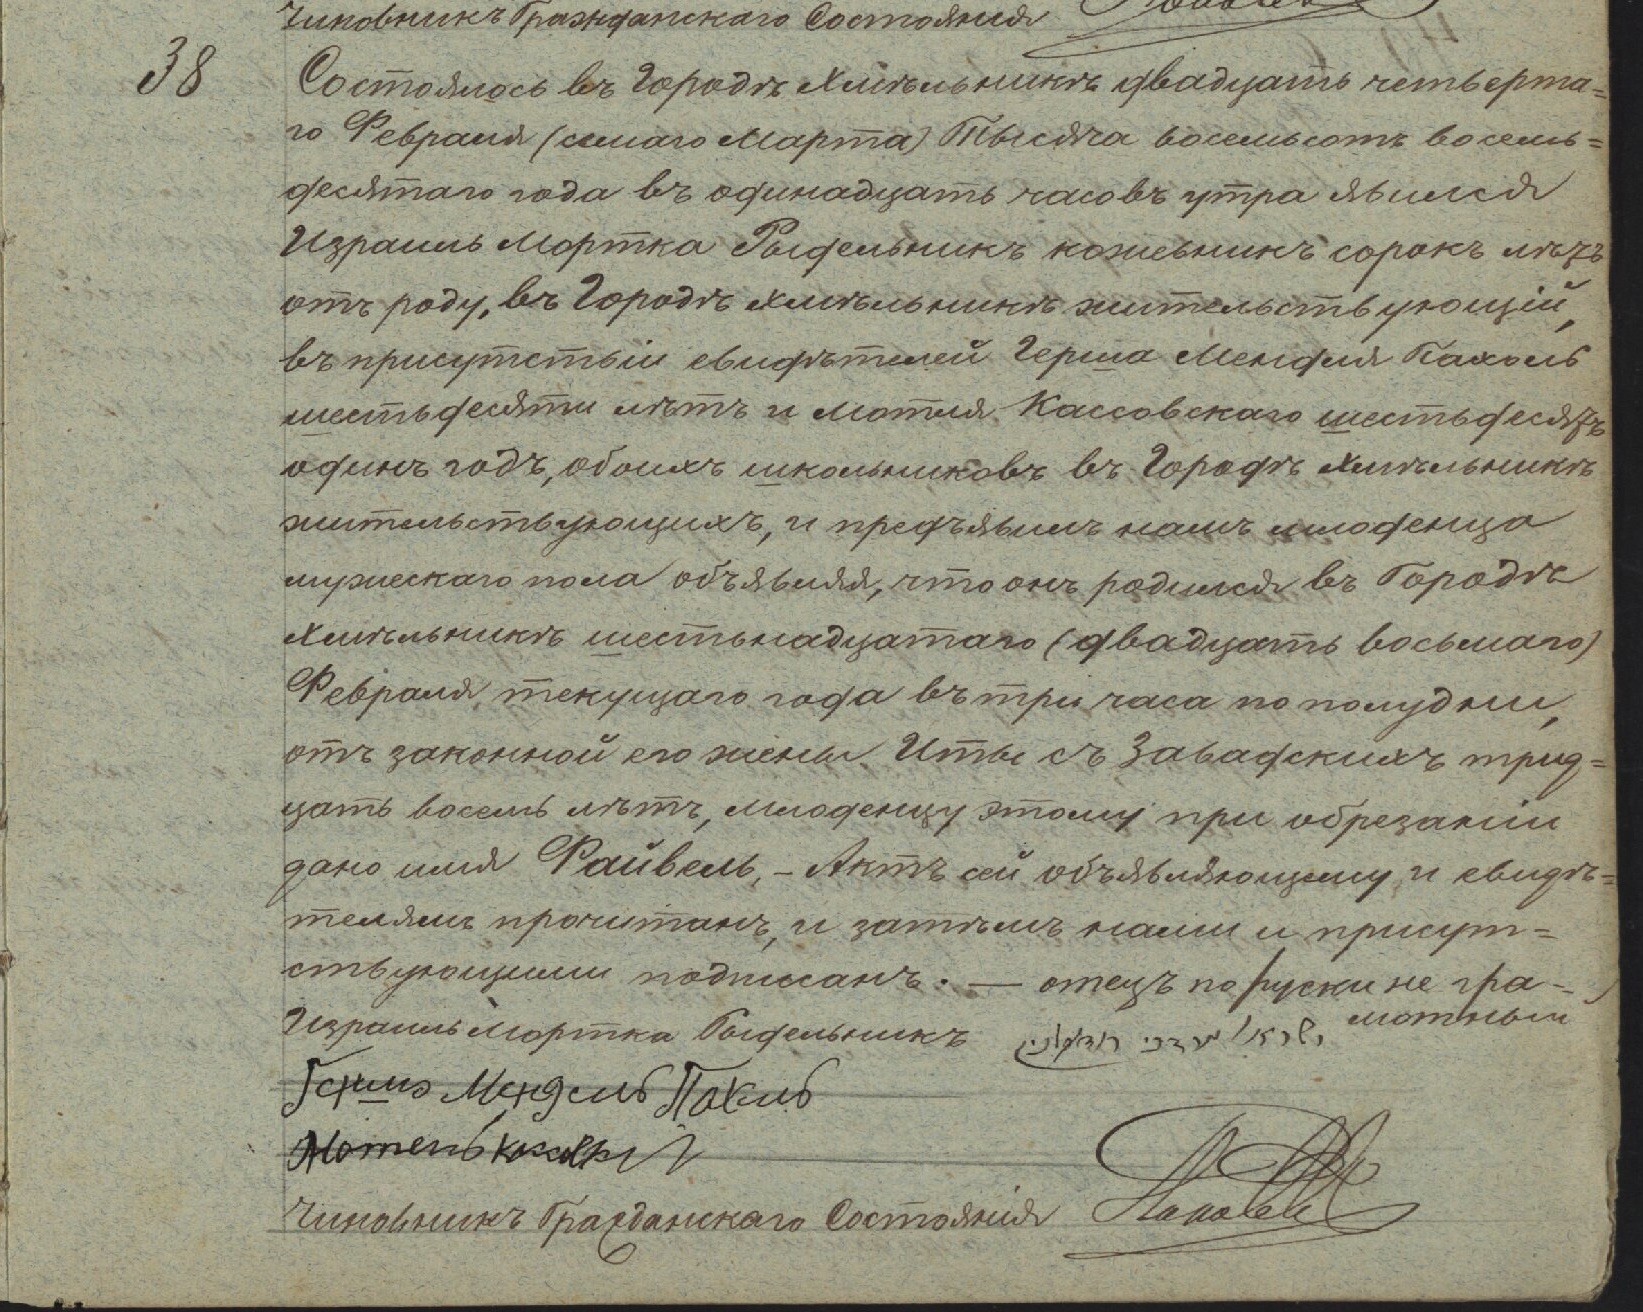 Чиновникъ Гражданскаго Состоянія
38
Состоялось въ Городѣ Хмѣльникѣ двадцать четверта=
го Февраля (седмаго Марта) Тысяча восемьсотъ восемь=
десятаго года въ одинадцать часовъ утра явился
Израиль Мортка Рыдельникъ кожевникъ сорокъ лѣтъ
отъ роду, въ Городѣ Хмѣльникѣ жительствующій,
въ присутствіи свидѣтелей Герша Менделя Пахоль
шестьдесяти лѣтъ и Мотля Кассовскаго шестьдесятъ
одинъ годъ, обоихъ школьниковъ въ Городѣ Хмѣльникѣ
жительствующихъ, и предъявилъ намъ младенца
мужескаго пола объявляя, что онъ родился въ Городѣ
Хмѣльникѣ шестьнадцатаго (двадцать восьмаго)
Февраля текущаго года въ три часа по полудни,
отъ законной его жены Иты съ Завадскихъ трид=
цать восемь лѣтъ, младенцу этому при обрезаніи
дано имя Файвель, – Актъ сей объявляющему и свидѣ=
телямъ прочитанъ, и затѣмъ нами и присут=
ствующими подписанъ. — отецъ по руски не гра=
мотный
Израиль Мортка Рыдельникъ ישראל מרדכי
Мендель
Мотель
Чиновникъ Гражданскаго Состоянія